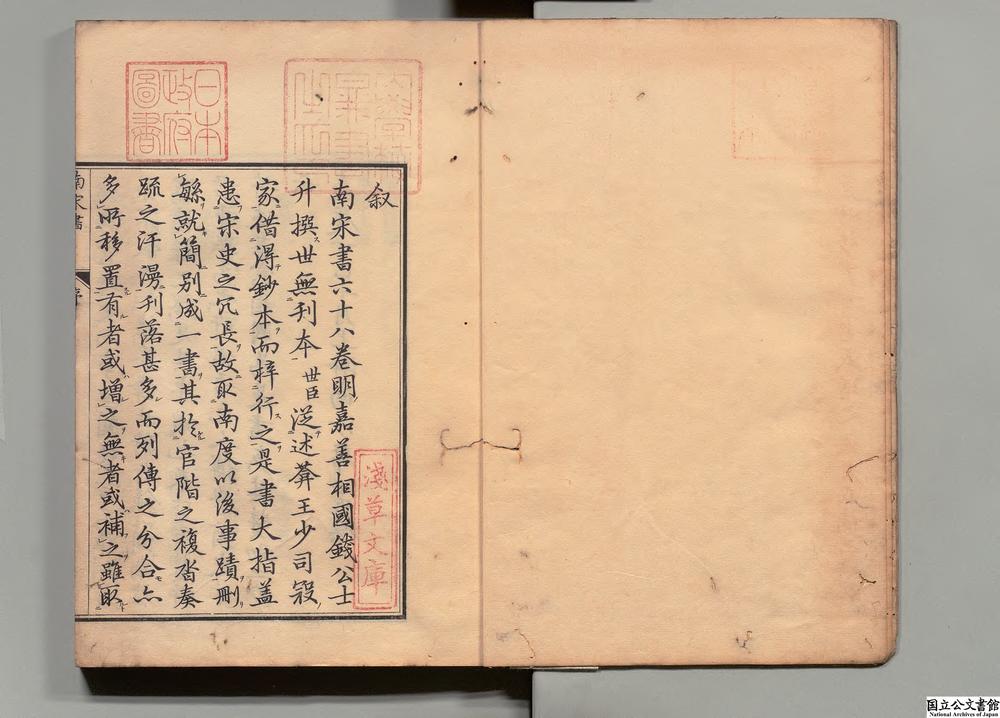 叙
南宋書六十八卷明嘉善相國錢公士
升撰世無刊本世臣從述菴王少司寇
家借得鈔本而梓行之是書大指蓋
患宋史之冗長故取南度以後事蹟刪
繇就簡別成一書其於官階之複沓奏
疏之汗漫刊落甚多而列傳之分合亦
多所移置有者或增之無者或補之雖取
南宋書
序
日本
政府
圖書
淺草文庫
国立公文書館
National Archives of Japan